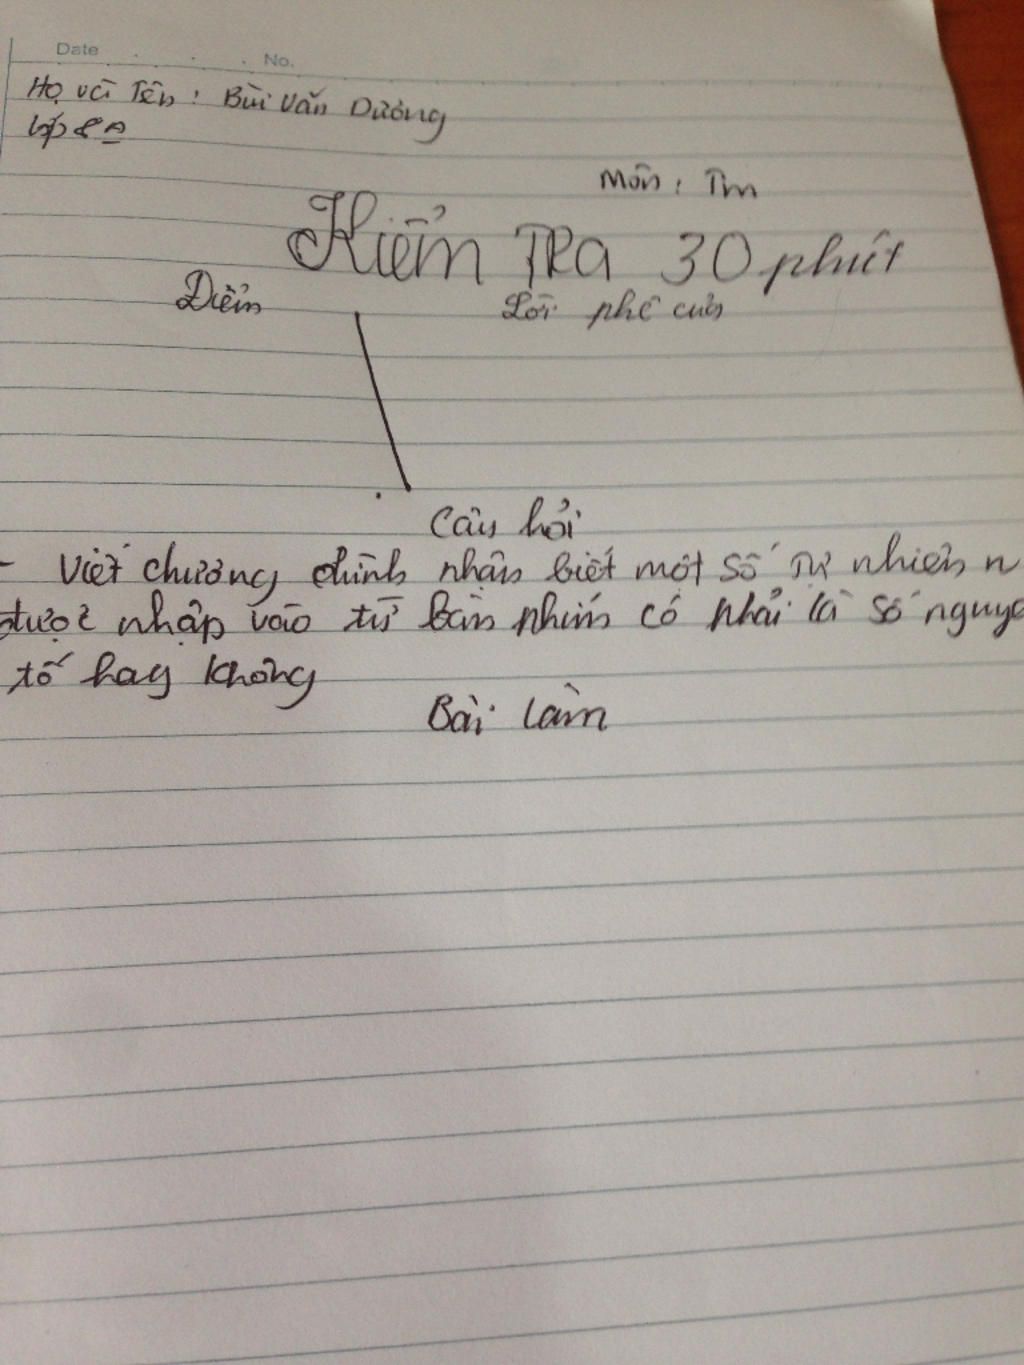 Date No.
Họ và Tên : Bùi Văn Dương
lớp 8A
Môn : Tin
Kiểm TRA 30 phút
Điểm Lời phê
Câu hỏi
- Viết chương chình nhận biết một số Tự nhiên n
được nhập vào từ bàn phím có phải là số nguyê
tố hay không
Bài làm